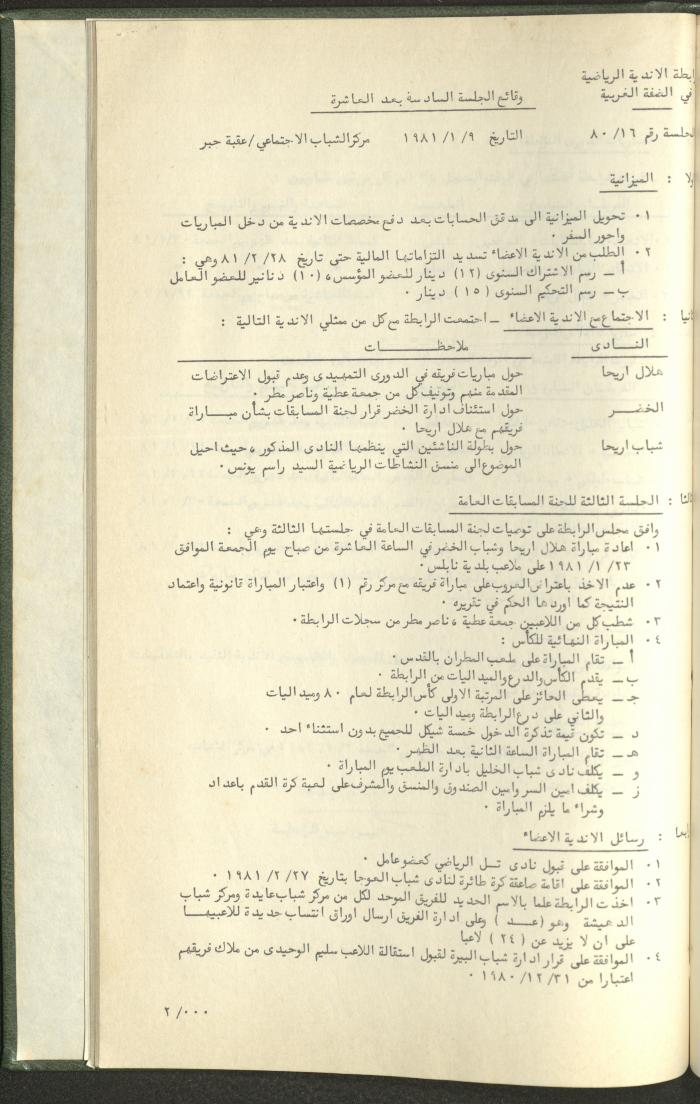 رابطة الاندية الرياضية
في الضفة الغربية
وقائع الجلسة السادسة بعد العاشرة
الجلسة رقم ٨٠/١٦ التاريخ ١٩٨١/١/٩ مركز الشباب الاجتماعي/عقبة جبر
ولا : الميزانية
٠١ تحويل الميزانية الى مدقق الحسابات بعد دفع مخصصات الاندية من دخل المباريات
واجور السفر ٠
٠٢ الطلب من الاندية الاعضاء تسديد التزاماتها المالية حتى تاريخ ٨١/٢/٢٨ وهي :
أ ــ رسم الاشتراك السنوى (١٢) دينار للعضو المؤسس، (١٠) دنانير للعضو العامل
ب ــ رسم التحكيم السنوى (١٥) دينار ٠
نيا : الاجتماع مع الاندية الاعضاء ــ اجتمعت الرابطة مع كل من ممثلي الاندية التالية :
النــادى ملاحظــــــات
هلال اريحا حول مباريات فريقه في الدورى التمهيدى وعدم قبول الاعتراضات
المقدمة منهم وتوقيف كل من جمعة عطية وناصر مطر ٠
الخضــر حول استئناف ادارة الخضر قرار لجنة المسابقات بشأن مبــاراة
فريقهم مع هلال اريحا ٠
شباب اريحا حول بطولة الناشئين التي ينظمها النادى المذكور ، حيث احيل
الموضوع الى منسق النشاطات الرياضية السيد راسم يونس ٠
الثا : الجلسة الثالثة للجنة المسابقات العامة
وافق مجلس الرابطة على توصيات لجنة المسابقات العامة في جلستها الثالثة وهي :
٠١ اعادة مباراة هلال اريحا وشباب الخضر في الساعة العاشرة من صباح يوم الجمعة الموافق
١٩٨١/١/٢٣ على ملاعب بلدية نابلس ٠
٠٢ عدم الاخذ باعتراض العروب على مباراة فريقه مع مركز رقم (١) واعتبار المباراة قانونية واعتماد
النتيجة كما اوردها الحكم في تقريره ٠
٠٣ شطب كل من اللاعبين جمعة عطية ، ناصر مطر من سجلات الرابطة ٠
٠٤ المباراة النهائية للكأس :
أ ــ تقام المباراة على ملعب المطران بالقدس ٠
ب ــ يقدم الكأس والدرع والميداليات من الرابطة ٠
جـ ــ يعطى الحائز على المرتبة الاولى كأس الرابطة لعام ٨٠ وميداليات
والثاني على درع الرابطة وميداليات ٠
د ــ تكون قيمة تذكرة الدخول خمسة شيكل للجميع بدون استثناء احد ٠
هـ ــ تقام المباراة الساعة الثانية بعد الظهر ٠
و ــ يكلف نادى شباب الخليل بادارة الملعب يوم المباراة ٠
ز ــ يكلف امين السر وامين الصندوق والمنسق والمشرف على لعبة كرة القدم باعداد
وشراء ما يلزم المباراة ٠
ابعا : رسائل الاندية الاعضاء
٠١ الموافقة على قبول نادى تــل الرياضي كعضو عامل ٠
٠٢ الموافقة على اقامة صاعقة كرة طائرة لنادى شباب العوجا بتاريخ ١٩٨١/٢/٢٧ ٠
٠٣ اخذت الرابطة علما بالاسم الجديد للفريق الموحد لكل من مركز شباب عايدة ومركز شباب
الدهيشة وهو (عــد) وعلى ادارة الفريق ارسال اوراق انتساب جديدة للاعبيهــا
على ان لا يزيد عن (٢٤) لاعبا
٠٤ الموافقة على قرار ادارة شباب البيرة لقبول استقالة اللاعب سليم الوحيدى من ملاك فريقهم
اعتبارا من ١٩٨٠/١٢/٣١ ٠
٢/٠٠٠